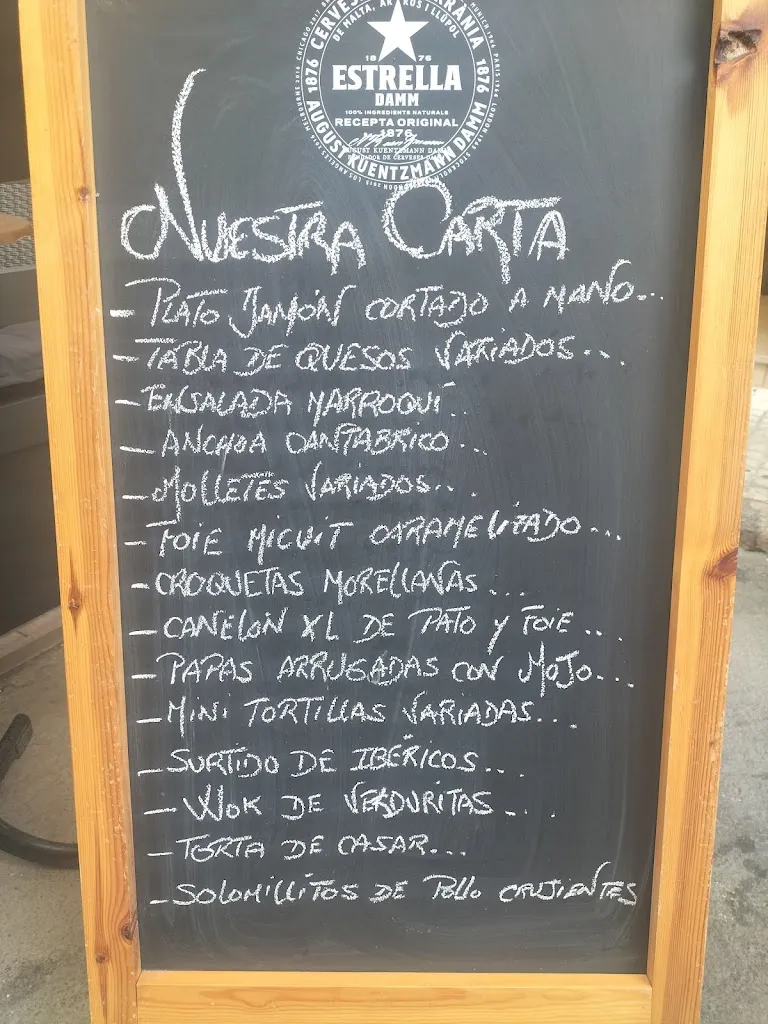 1876 CERVE
DE MALTA, AR ROS I LLÚPOL
18 76
ESTRELLA
DAMM
100% INGREDIENTS NATURALS
RECEPTA ORIGINAL
1876
AUGUST KUENTZMANN DAMM 1876
NUESTRA CARTA
- PLATO JAMÓN CORTADO A MANO...
- TABLA DE QUESOS VARIADOS...
- ENSALADA MARROQUÍ..
- ANCHOA CANTABRICO...
- MOLLETES VARIADOS...
- FOIE MICUIT CARAMELIZADO...
- CROQUETAS MORELLANAS...
- CANELON XL DE PATO Y FOIE...
- PAPAS ARRUGADAS CON MOJO...
- MINI TORTILLAS VARIADAS...
- SURTIDO DE IBÉRICOS...
- WOK DE VERDURITAS...
- TORTA DE CASAR...
- SOLOMILLITOS DE POLLO CRUJIENTES